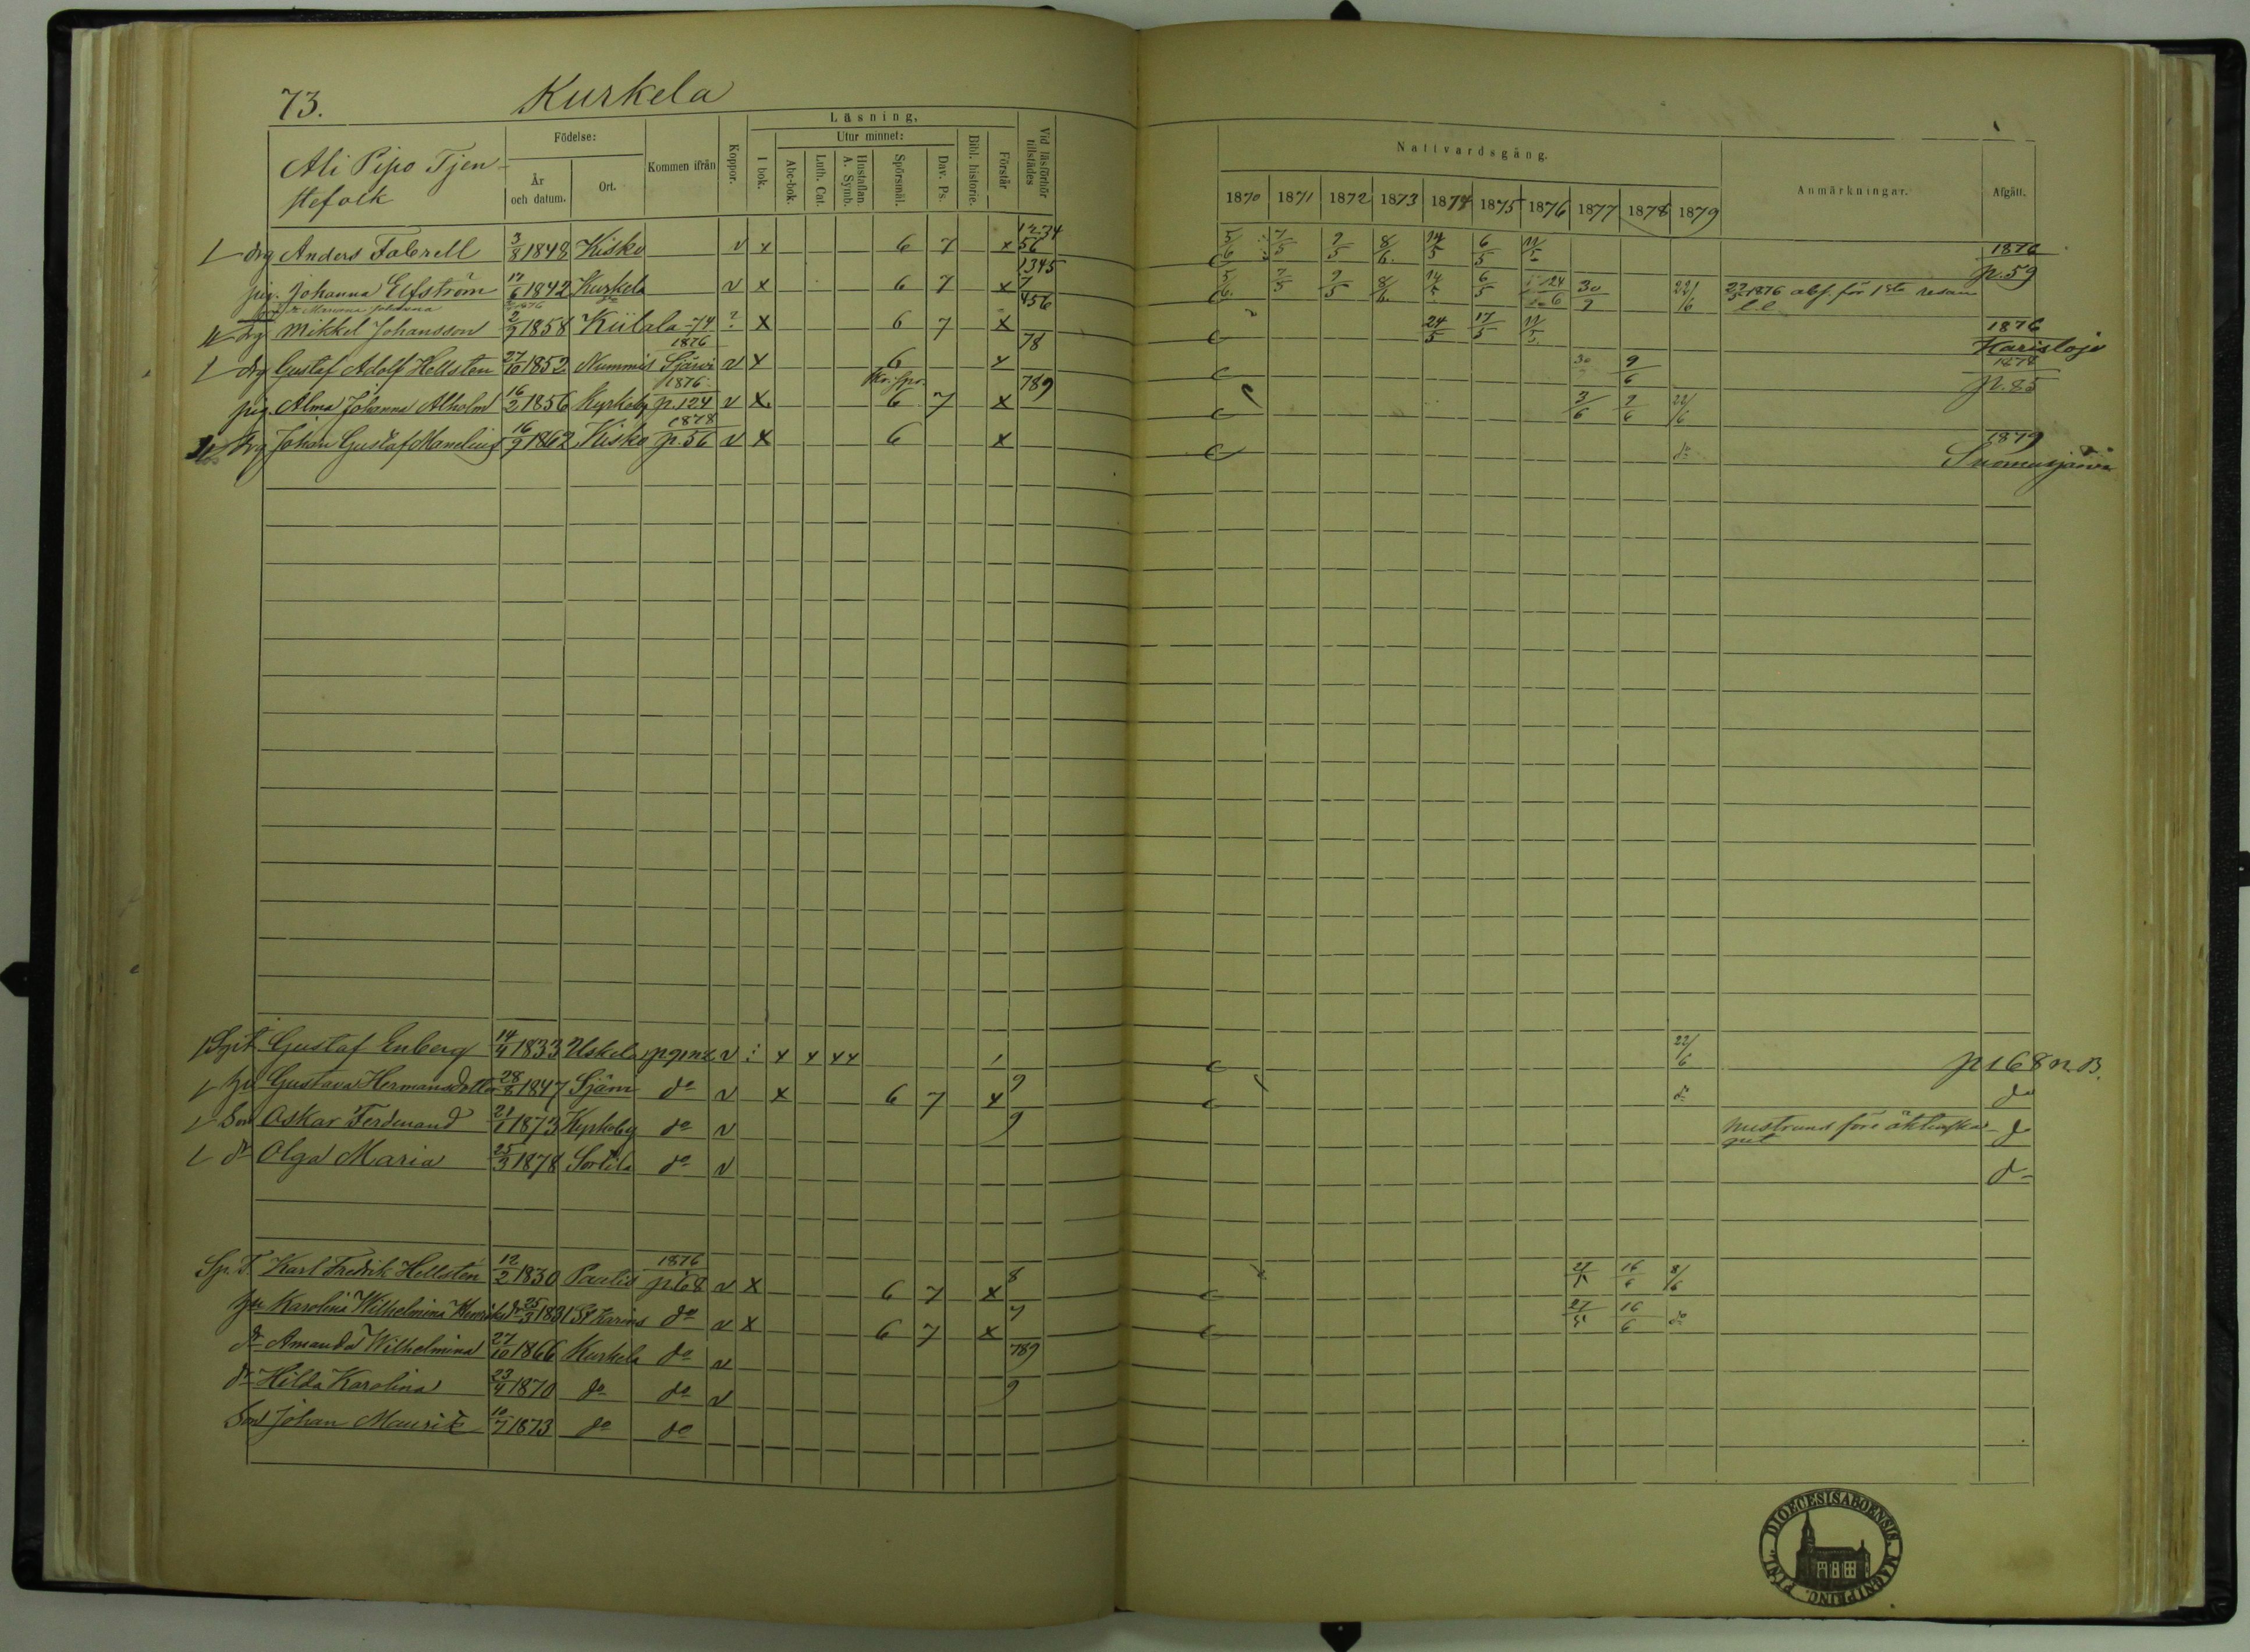 73. Kurkela
Ali Pipo Tjen-
stefolk
Födelse:
År
och datum.
Ort.
Kommen ifrån
Koppor.
Läsning,
I bok.
Utur minnet:
Abc-bok.
Luth. Cat.
Hustaflan.
A. Symb.
Spörsmål.
Dav. Ps.
Bibl. historie.
Förstår
Vid läsförhör
tillstädes
Nattvardsgång.
1870 1871 1872 1873 1874 1875 1876 1877 1878 1879
Anmärkningar.
Afgått.
drg Anders Fabrell 3/8 1848 Kisko v x 6 7 x 1234 56 5/6 7/5 7/5 8/6 14/5 6/5 11/5 1876 p. 59
pig. Johanna Elfström 17/6 1842 Kurkela v x 6 7 x 1345 7 5/6 7/5 7/5 8/6. 14/5 6/5 30/9 22/6 22/5 1876 abs. för 1sta resan l.l.
drg Mikkel Johansson 2/9 1858 Kiikala -74 ? x 6 7 x 456 24/5 17/5 11/5 1876 Karislojo
drg Gustaf Adolf Hellsten 27/10 1852 Nummis 1876 Sjärvi v x 6 x 78 30 9/6 1878 p. 85
pig. Alma Johanna Alholm 16/2 1856 Kyrkoby 1876 p. 124 v x 6 7 x 789 3/6 9/6 22/6
drg Johan Gustaf Manelius 16/9 1862 Kisko 1878 p. 56 v x 6 x do 1879 Suomusjärvi
Gustaf Enberg 14/4 1833 Uskela v x x x x 22/6 p 168 n. B.
hu Gustava Hermansdotter 28/8 1847 Sjärvi do v x 6 7 x 9 do do
Son Oskar Ferdinand 21/1 1873 Kyrkoby do v 9 do
dr Olga Maria 25/3 1878 Sortila do v do
Sp. T. Karl Fredrik Hellsten 12/2 1830 Pautis 1876 p. 68 v x 6 7 x 8 27/5 16/6 8/6
hu Karolina Wilhelmina Henriksdr 25/3 1831 St Karins do v x 6 7 x 7 27/5 16/6 do
dr Amanda Wilhelmina 27/10 1866 Kurkela do v 789
dr Hilda Karolina 23/4 1870 do do v 9
Son Johan Maurits 10/7 1873 do do
DIOECESIS ABOENSIS. MAGNI PRINC. FINL.